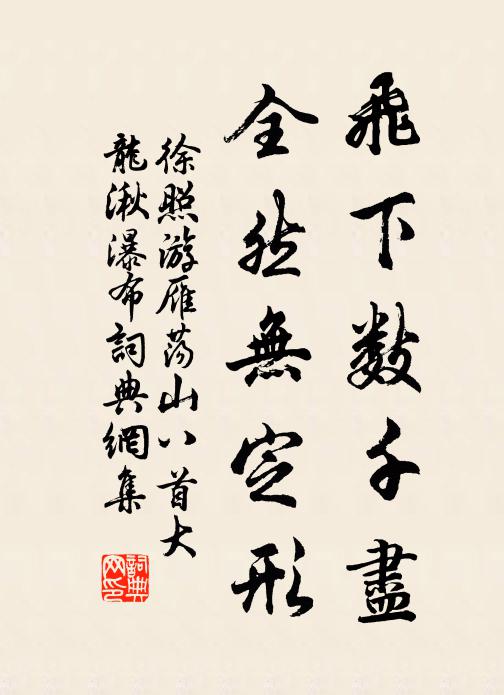 飛下數千盡
全然無定形
徐照游雁蕩山八首大
龍湫瀑布詞典網集
詞典
网印